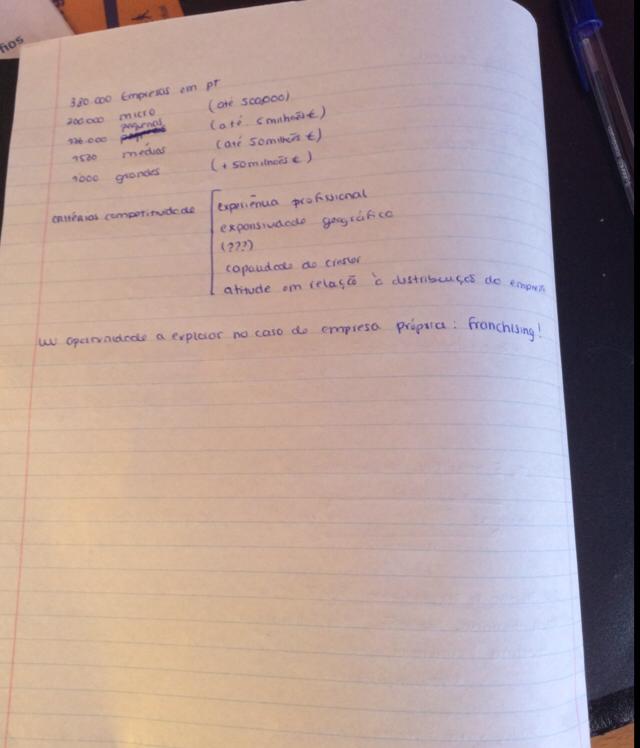 fios
380.000 Empresas em pt
200.000 micro (até 500.000)
176.000 pequenas (até 5 milhões €)
1520 médias (até 50 milhões €)
1000 grandes (+ 50 milhões €)
critérios competitividade
experiência profissional
expansividade geográfica
(???)
capacidade de crescer
atitude em relação à distribuição do empresa
oportunidade a explorar no caso de empresa própria: Franchising!